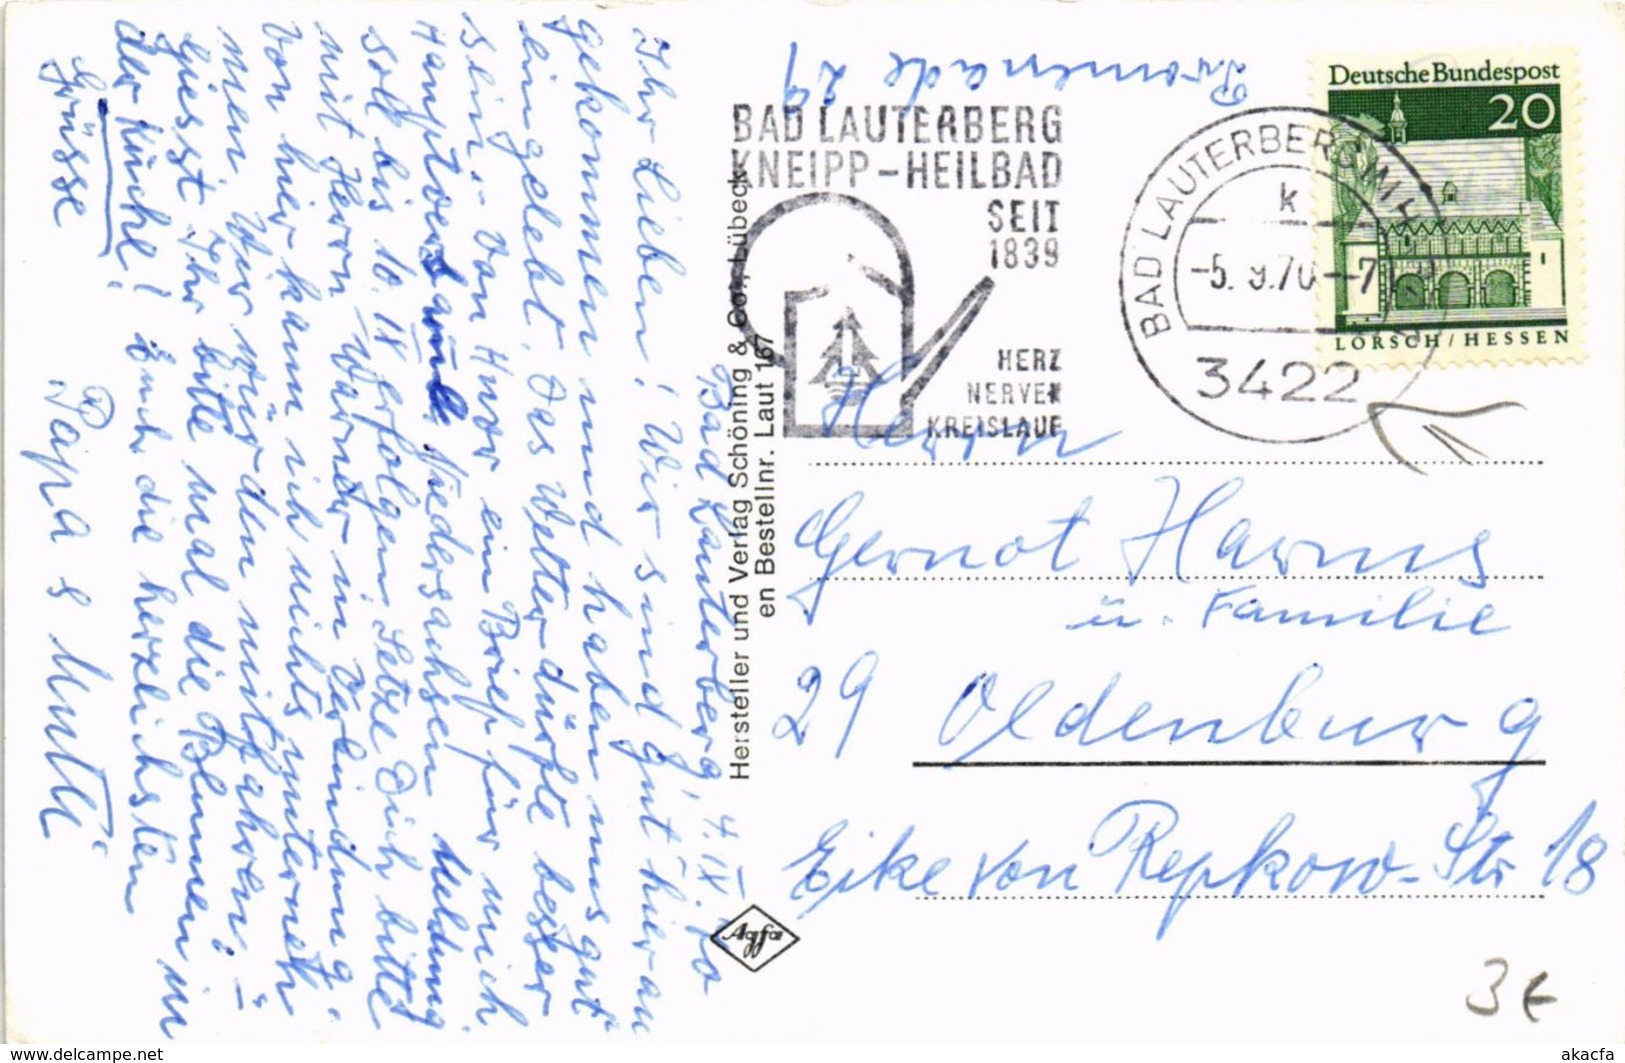 Promenade 29
Deutsche Bundespost
20
LORSCH/HESSEN
BAD LAUTERBERG
KNEIPP-HEILBAD
SEIT
1839
HERZ
NERVEN
KREISLAUF
BAD LAUTERBERG
k
-5. 9.70--7
3422
Bad Lauterberg, 4. IX. 70
Ihr Lieben! Wir sind gut hier an
gekommen und haben uns gut
eingelebt. Das Wetter dürfte besser
sein. Von ein Brief für mich
Niedersachsen Meldung
soll bis 10. IX erfolgen. Setze Dich bitte
mit Herrn Warner in Verbindung.
Von hier kann ich nichts unterneh
men. Wir würden mitfahren! -
Giesst Ihr bitte mal die Blumen in
der Küche! Euch die herzlichsten
Grüsse Papa & Mutti
Hersteller und Verlag Schöning & Co., Lübeck
en Bestellnr. Laut 167
Agfa
Herrn
Gernot Harms
u. Familie
29 Oldenburg
Eike von Repkow-Str 18
3 €
www.delcampe.net
akacfa